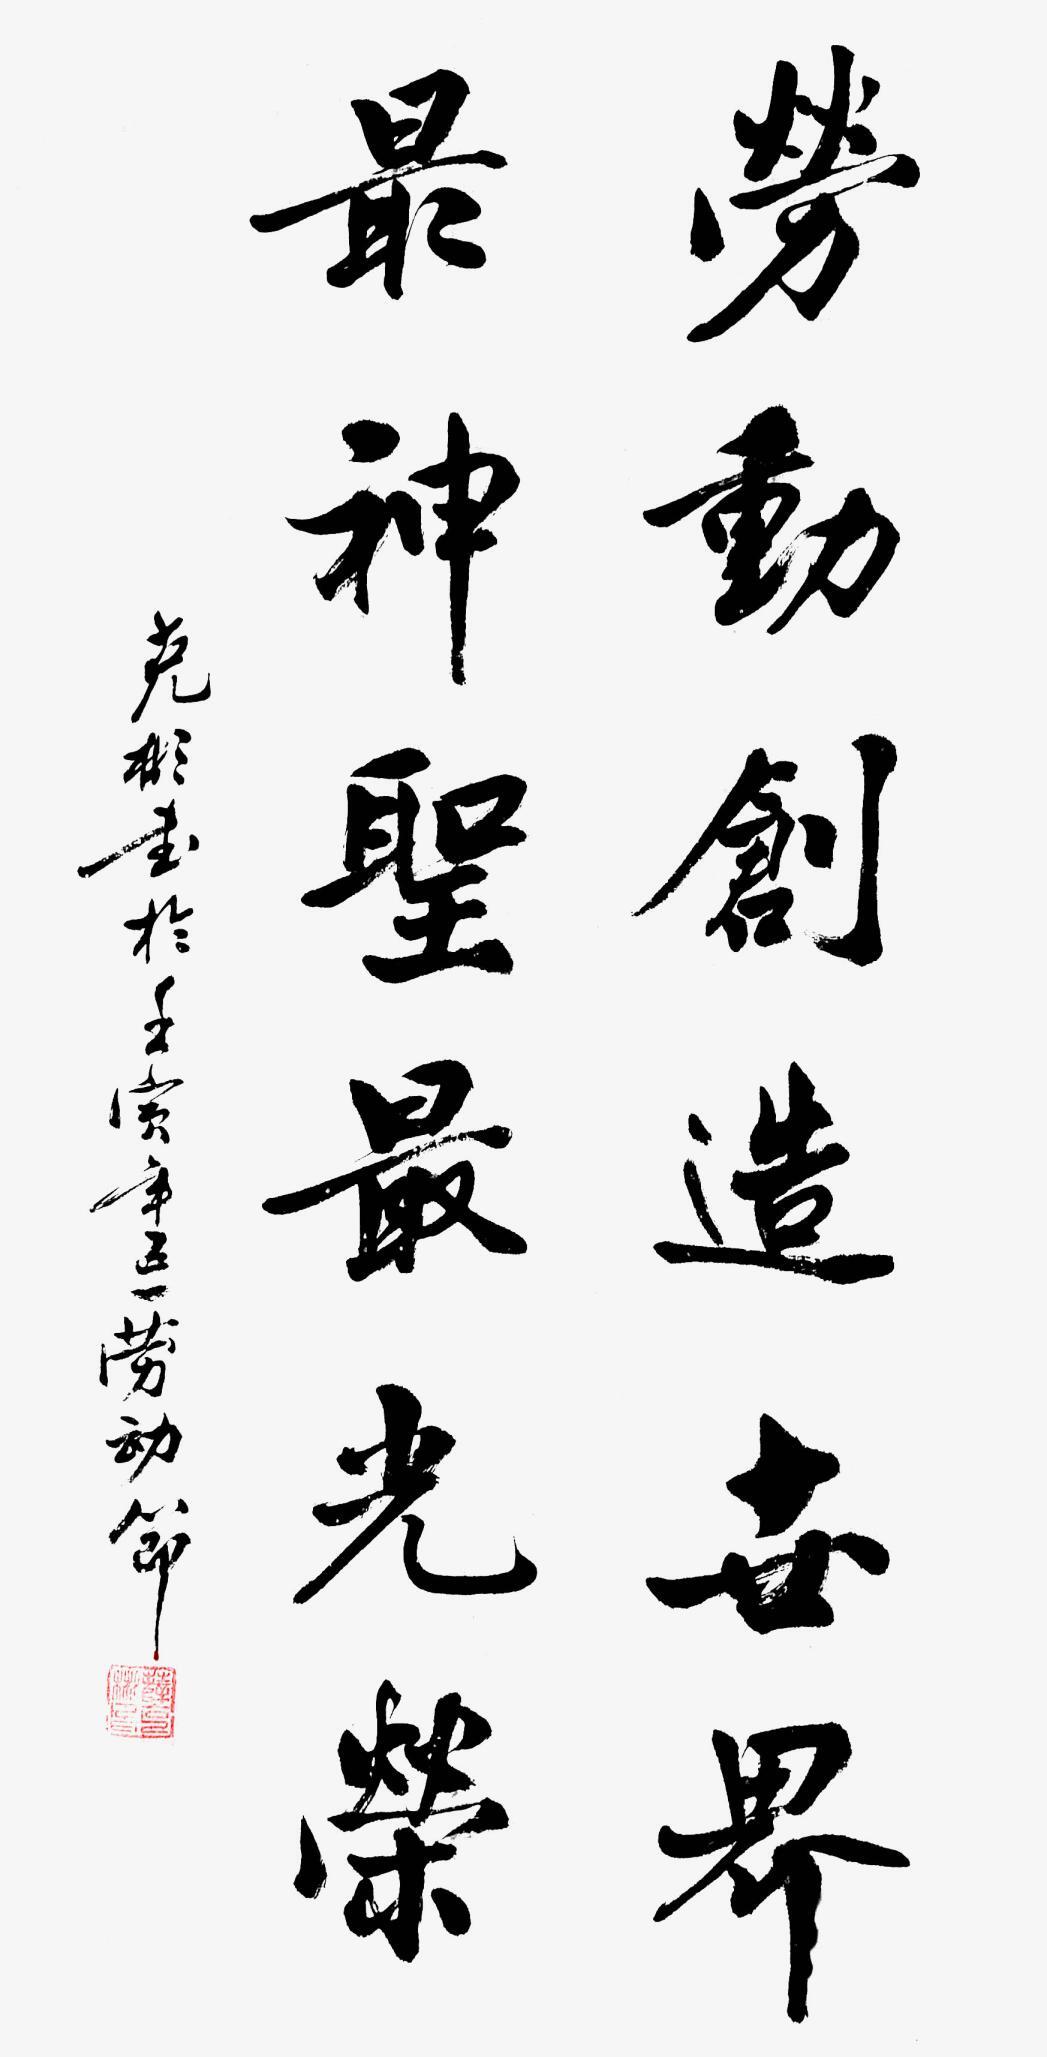 勞動創造世界
最神聖最光榮
克彬书於壬寅年五一劳动節